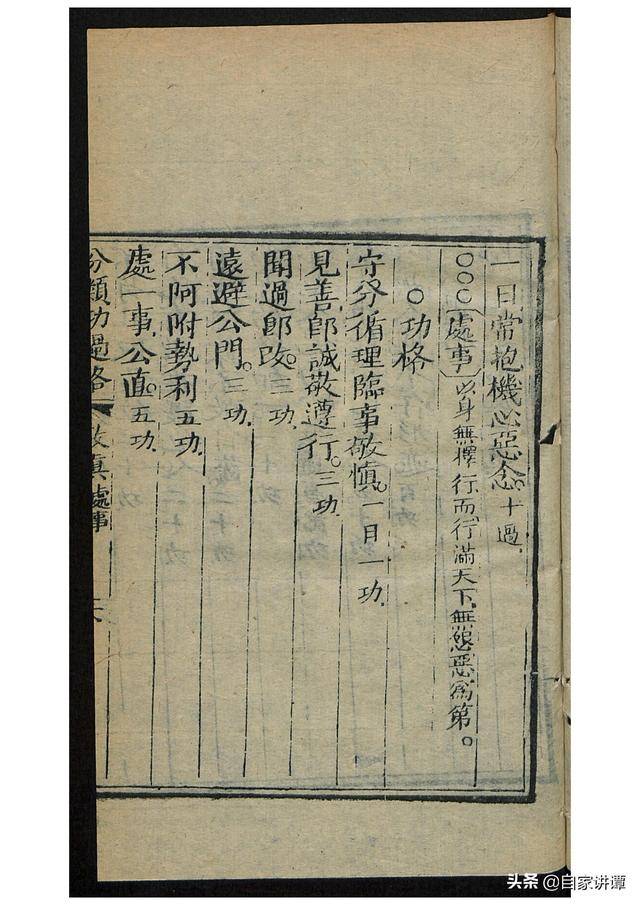 一日常抱機心惡念。十過。
○○○〔處事〕以身無擇行而行滿天下無怨惡爲第。
○功格
守分循理臨事敬慎。一日一功。
見善卽誠敬遵行。三功
聞過卽改。三功
遠避公門。三功
不阿附勢利五功
處一事公直。五功
分類功過格 敦真處事
头条 @自家讲谭